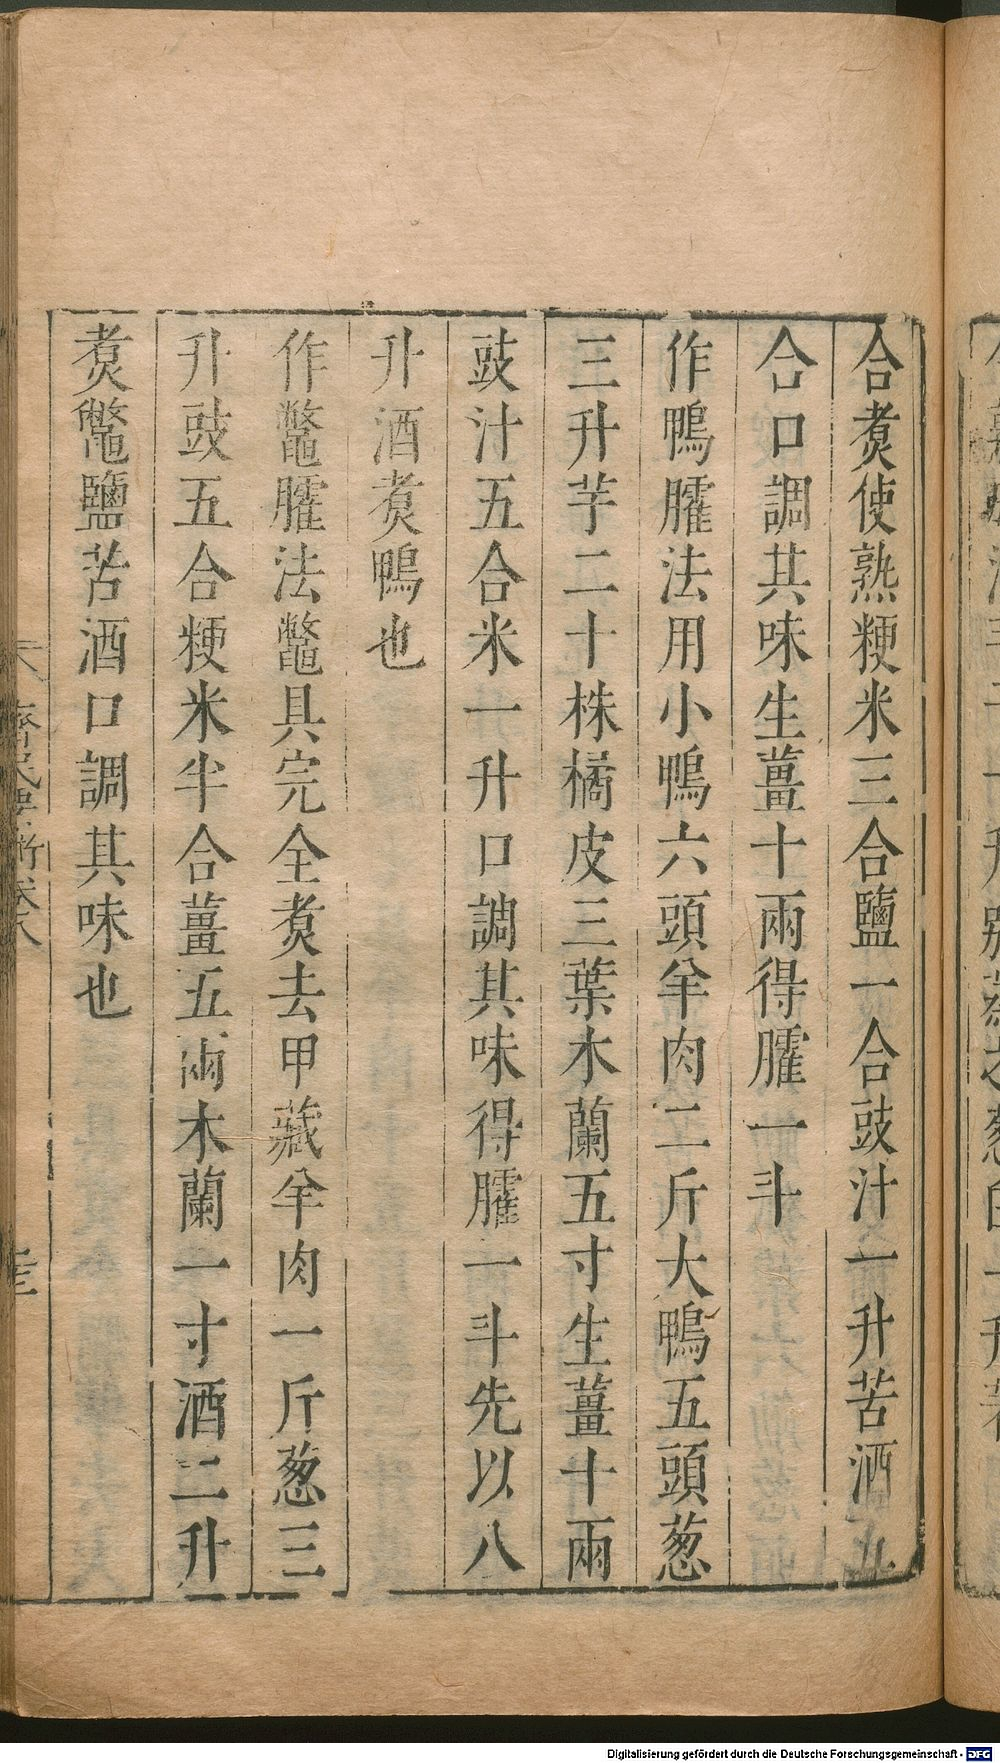 合煑使熟粳米三合鹽一合豉汁一升苦酒五
合口調其味生薑十兩得臛一斗
作鴨臛法用小鴨六頭羊肉二斤大鴨五頭葱
三升芋二十株橘皮三葉木蘭五寸生薑十兩
豉汁五合米一升口調其味得臛一斗先以八
升酒煑鴨也
作鼈臛法鼈具完全煑去甲藏羊肉一斤葱三
升豉五合粳米半合薑五兩木蘭一寸酒二升
煑鼈鹽苦酒口調其味也
齊民要術卷八
Digitalisierung gefördert durch die Deutsche Forschungsgemeinschaft - DFG